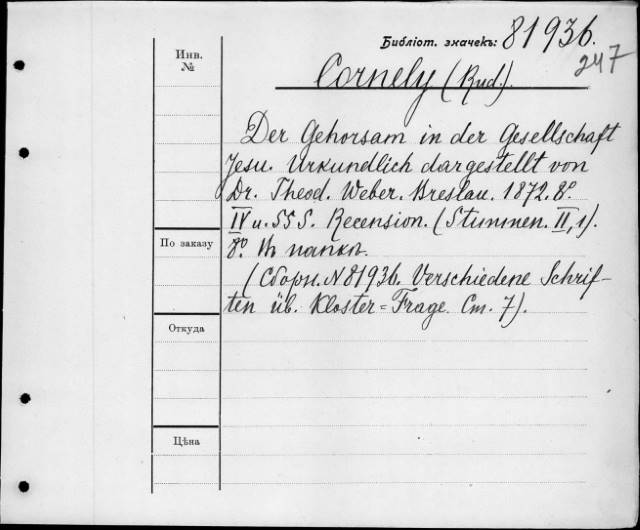 Библіот. значекъ: 81936.
247
Инв.
№
Cornely (Rud.).
Der Gehorsam in der Gesellschaft
Jesu. Urkundlich dargestellt von
Dr. Theod. Weber. Breslau. 1872. 8º
IV u. 55 S. Recension. (Stimmen. II, 1).
8º. Въ папкѣ.
(Сборн. N 81936. Verschiedene Schrif-
ten üb. Kloster=Frage. Ст. 7).
По заказу
Откуда
Цѣна